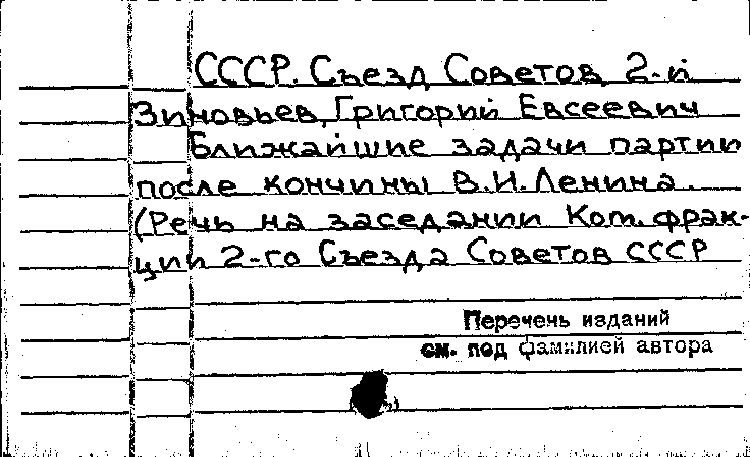 СССР. Съезд Советов, 2-й
Зиновьев, Григорий Евсеевич
Ближайшие задачи партии
после кончины В.И.Ленина.
(Речь на заседании Ком. фрак-
ции 2-го Съезда Советов СССР
Перечень изданий
см. под фамилией автора